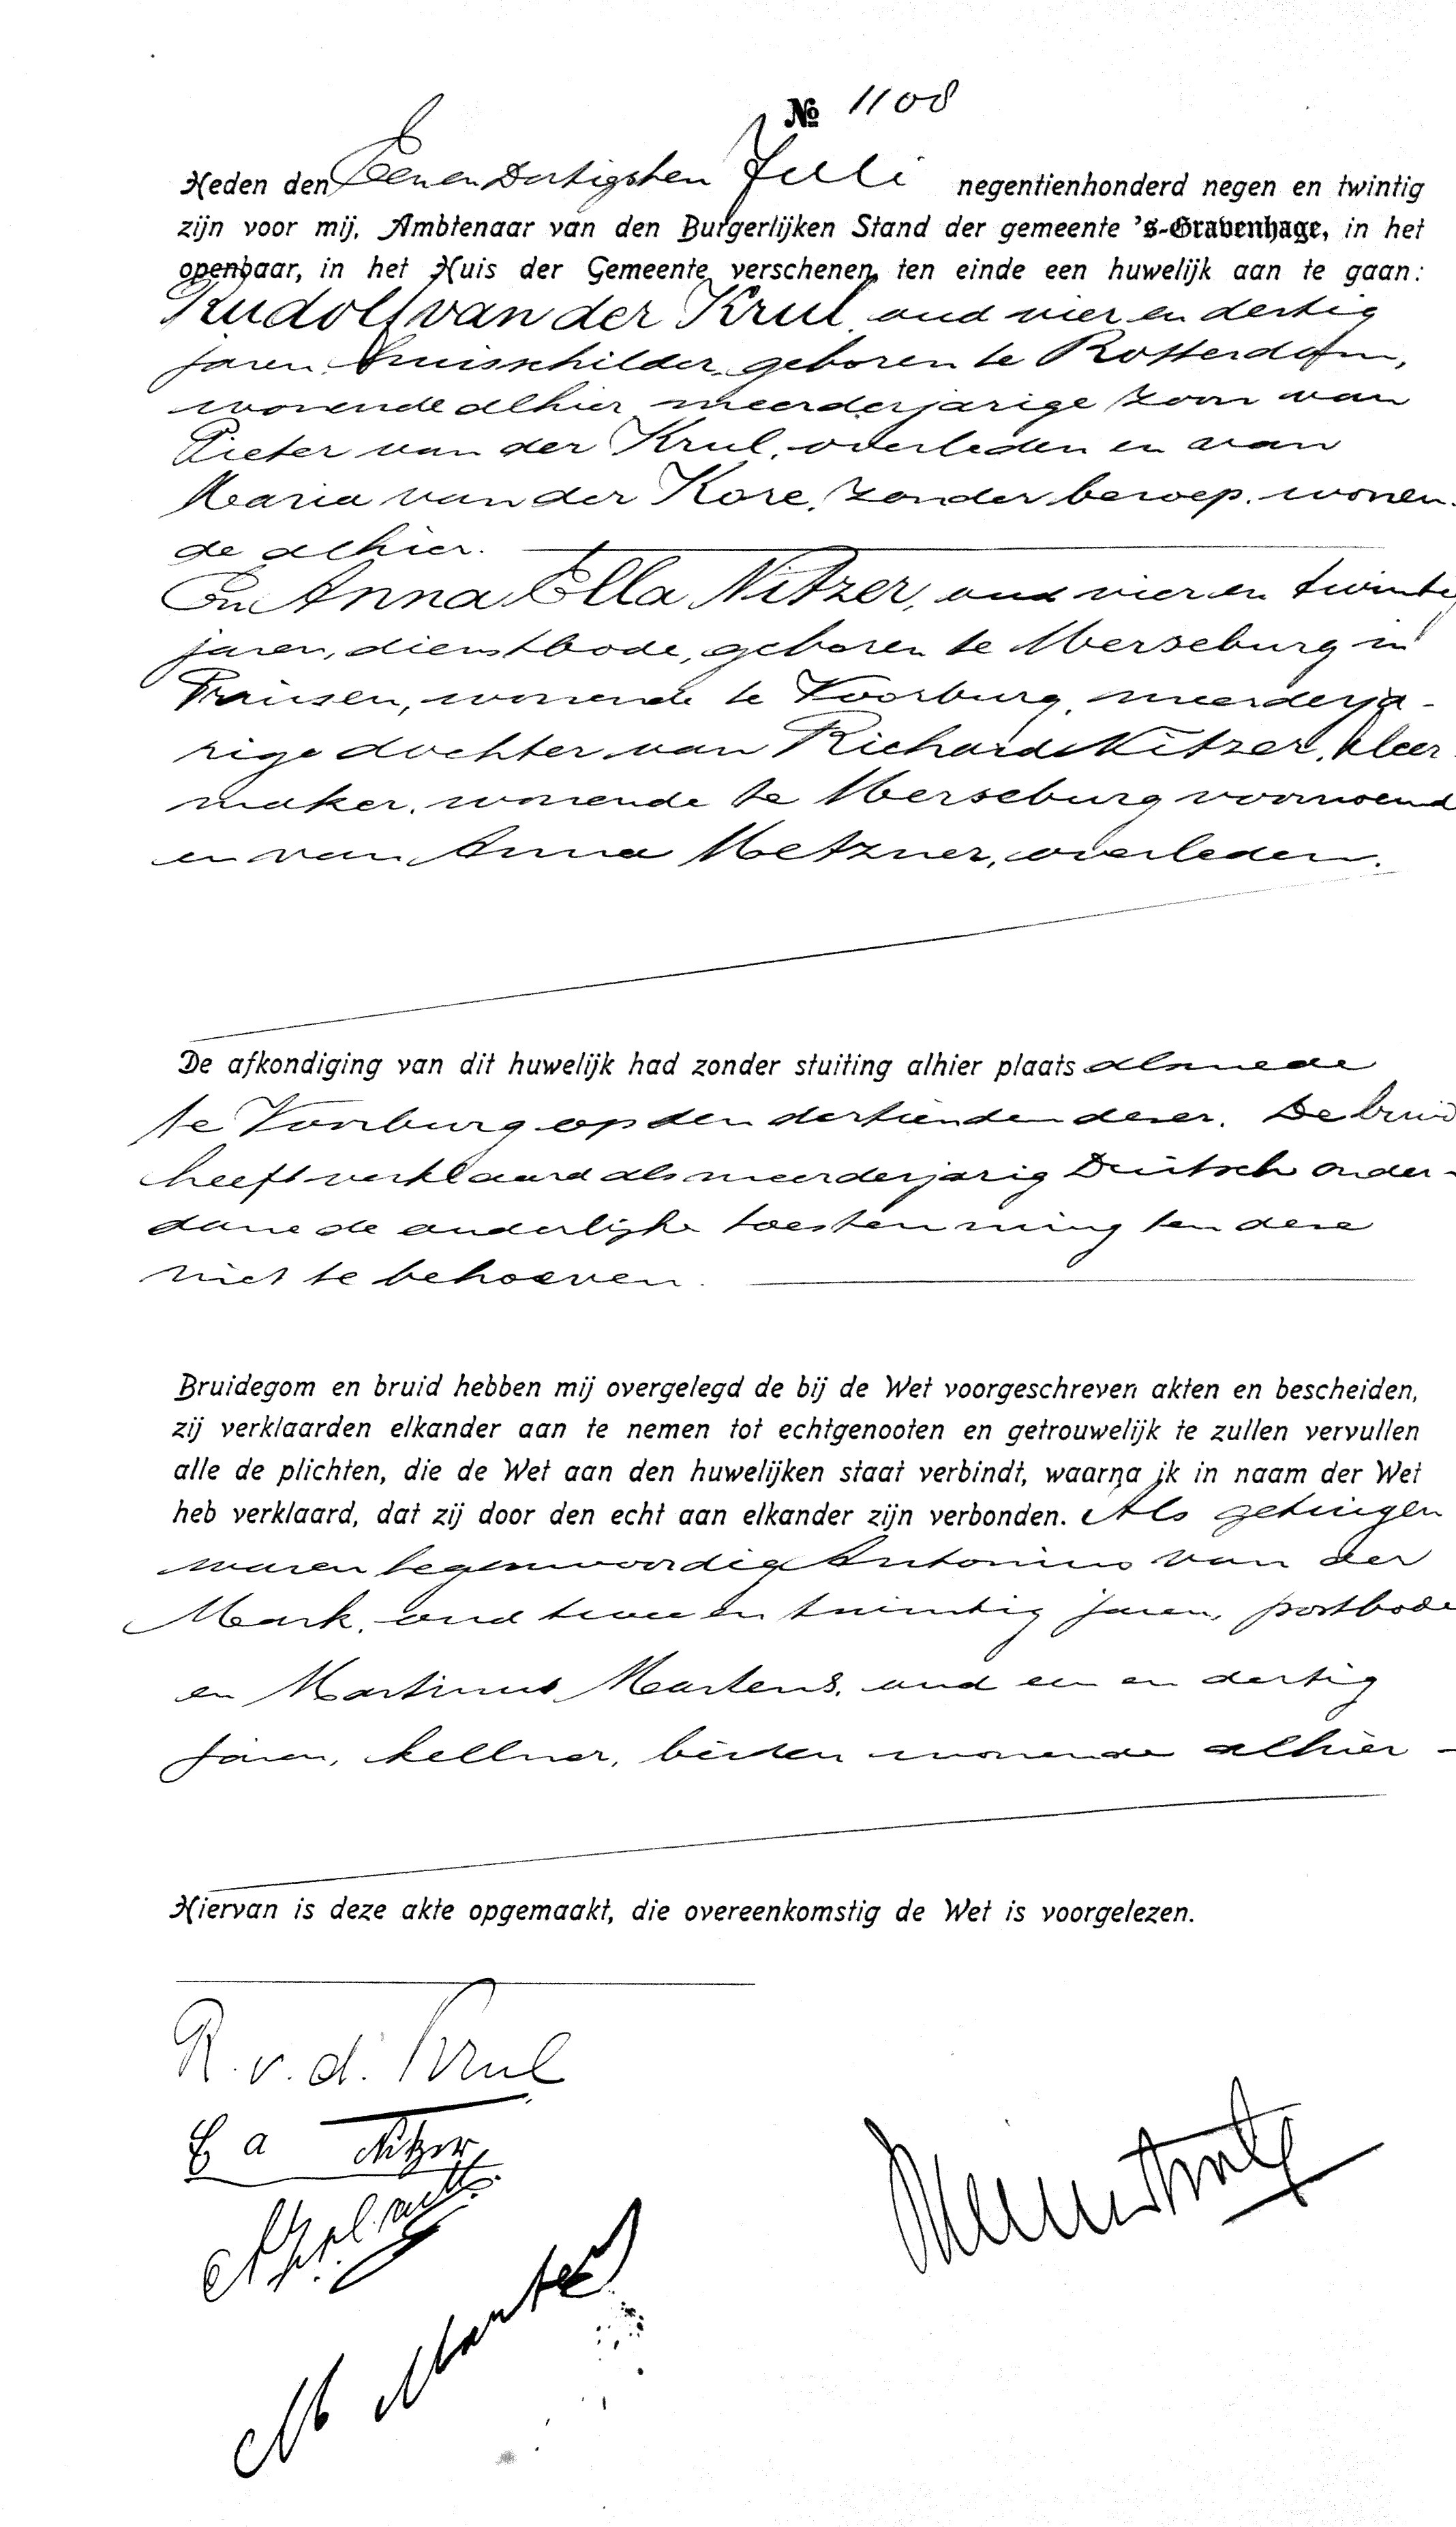 No 1108
Heden den Eenen Dertigsten Juli negentienhonderd negen en twintig
zijn voor mij, Ambtenaar van den Burgerlijken Stand der gemeente 's-Gravenhage, in het
openbaar, in het Huis der Gemeente verschenen ten einde een huwelijk aan te gaan:
Rudolf van der Krul, oud vier en dertig
jaren, huisschilder, geboren te Rotterdam,
wonende alhier, meerderjarige zoon van
Pieter van der Krul, overleden en van
Maria van der Kore, zonder beroep, wonen-
de alhier.
En Anna Ella Nitzer, oud vier en twintig
jaren, dienstbode, geboren te Merseburg in
Pruisen, wonende te Voorburg, meerderja-
rige dochter van Richard Nitzer, kleer-
maker, wonende te Merseburg voornoemd
en van Anna Metzner, overleden.
De afkondiging van dit huwelijk had zonder stuiting alhier plaats alsmede
te Voorburg op den dertienden dezer. De bruid
heeft verklaard als meerderjarig Duitsch onder-
dane de ouderlijke toestemming ten deze
niet te behoeven.
Bruidegom en bruid hebben mij overgelegd de bij de Wet voorgeschreven akten en bescheiden,
zij verklaarden elkander aan te nemen tot echtgenooten en getrouwelijk te zullen vervullen
alle de plichten, die de Wet aan den huwelijken staat verbindt, waarna ik in naam der Wet
heb verklaard, dat zij door den echt aan elkander zijn verbonden. Als getuigen
waren tegenwoordig Antonius van der
Mark, oud twee en twintig jaren, postbode
en Martinus Martens, oud een en dertig
jaren, kellner, beiden wonende alhier -
Hiervan is deze akte opgemaakt, die overeenkomstig de Wet is voorgelezen.
R. v. d. Krul
E a Nitzer
M Martens